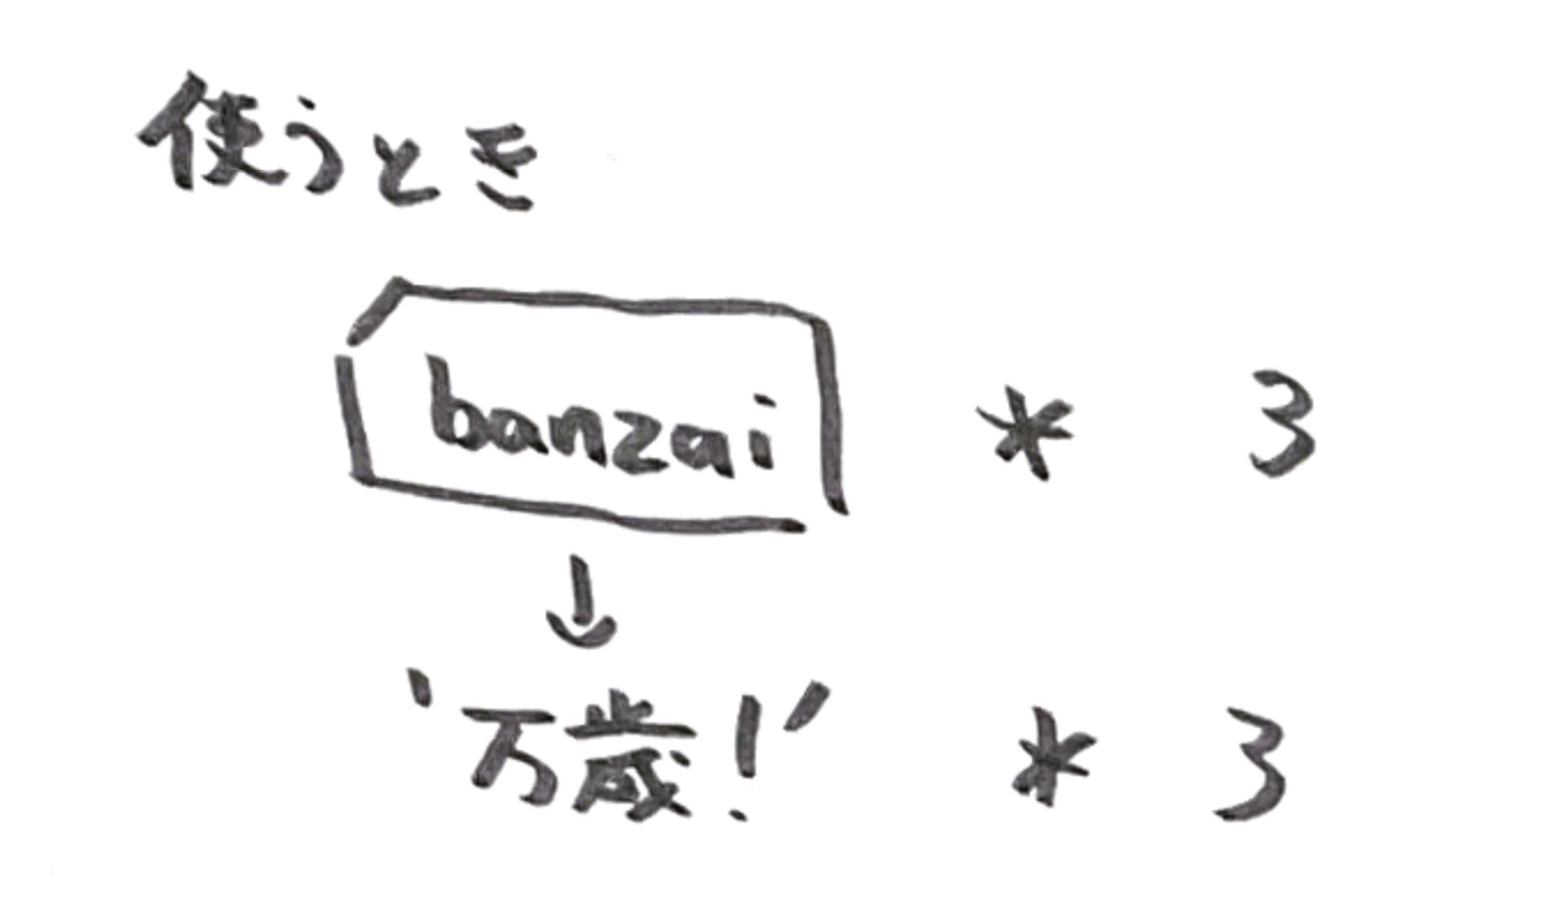 使うとき
banzai * 3
↓
'万歳!' * 3